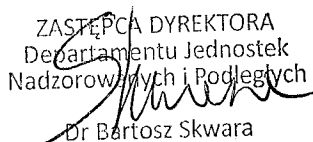 ZASTĘPCA DYREKTORA
Departamentu Jednostek
Nadzorowanych i Podległych
Dr Bartosz Skwara